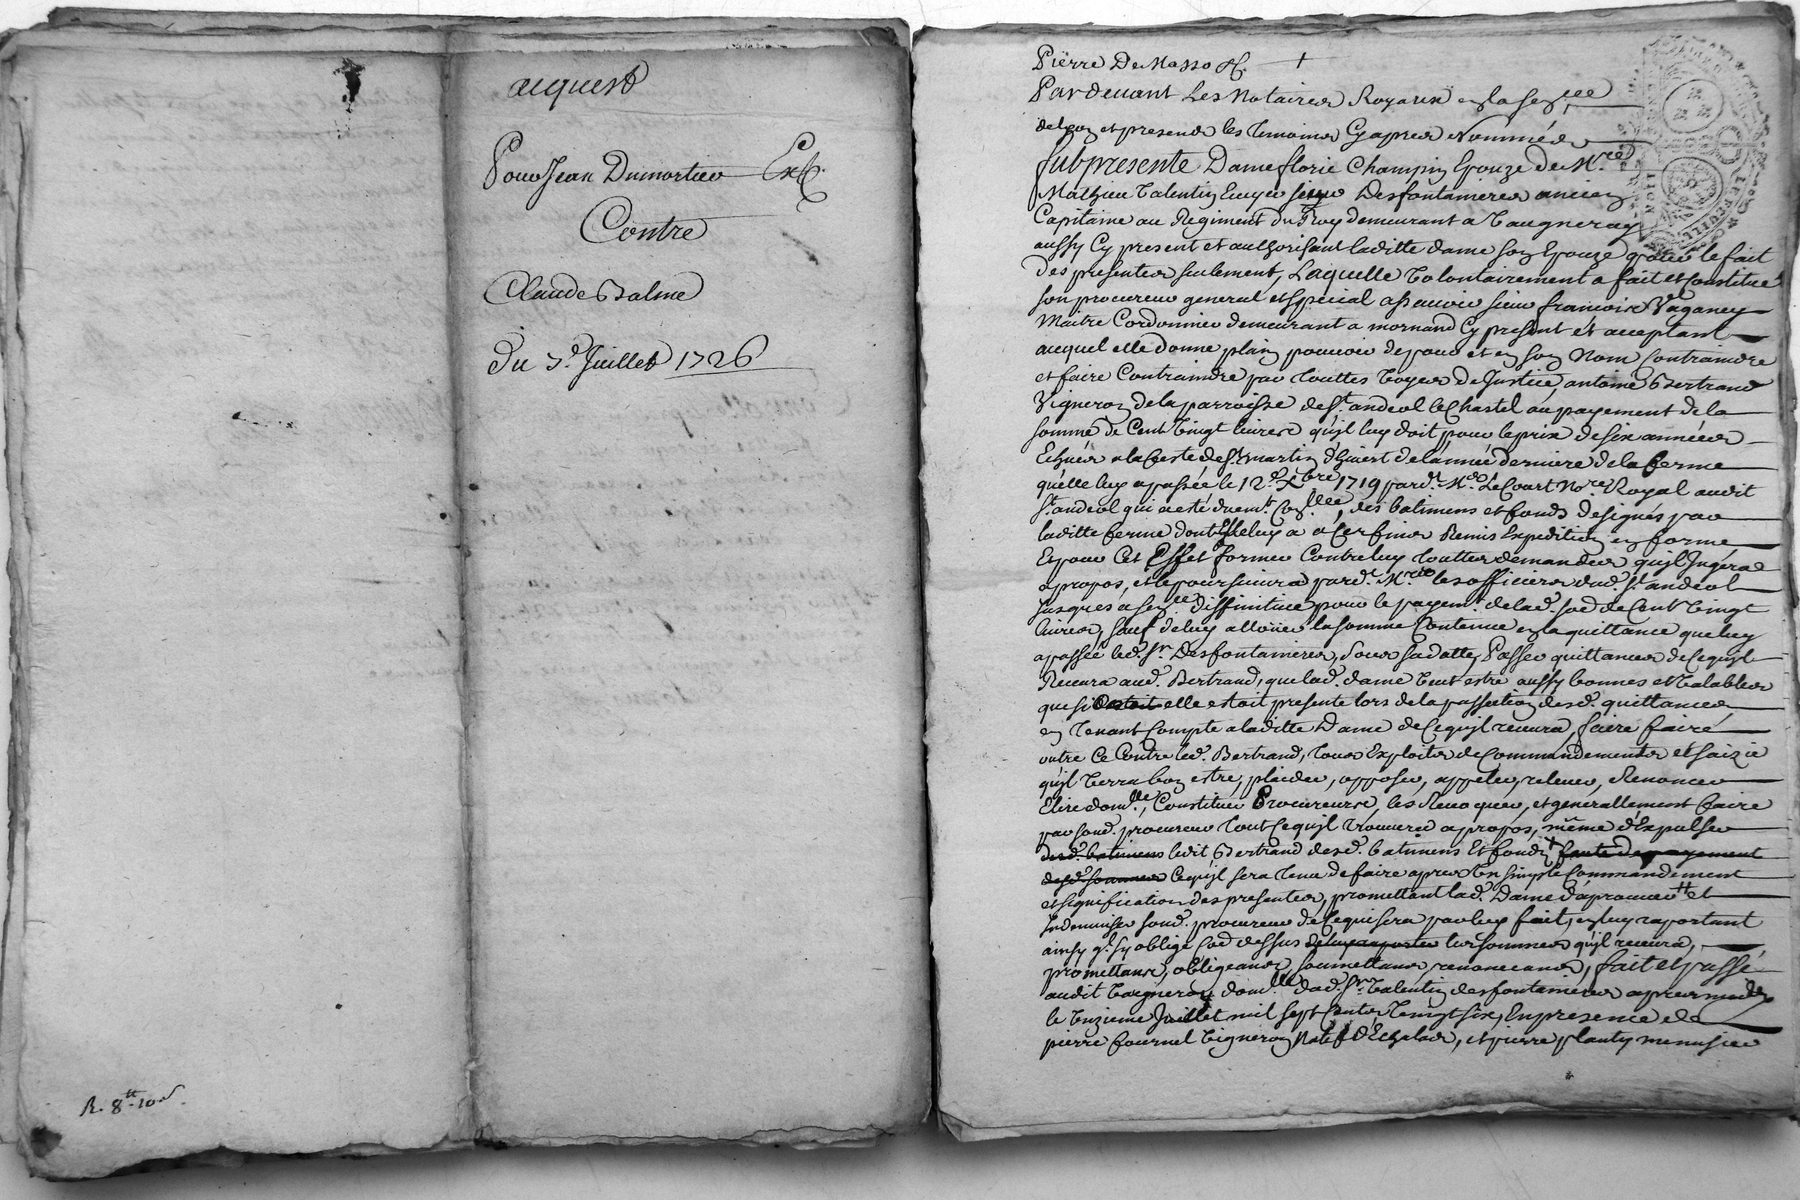 acquest
Pour Jean Dumortier Ex.
Contre
Claude Balme
Du 7.e Juillet 1726
R. 8tt 10s
Pierre De Masso &c.
Pardevant Les Notaires Royaux en la Sen.cée
de Lyon et presence les temoins Cy apres Nommés
fut presente Dame florie Champin Epouze de M.re
Mathieu Valentin Ecuyer sieur Desfontaineres ancien
Capitaine au Regiment du Roy demeurant a Vaugneray
aussy Cy present et authorisant laditte dame son Epouze pour le fait
des presentes seulement, Laquelle Volontairement a fait et Constitué
son procureur general et special a sçavoir sieur francois Vaganey
Maitre Cordonnier demeurant a mornand Cy present et acceptant
auquel elle donne plain pouvoir de pour et en son Nom Contraindre
et faire Contraindre par touttes Voyes de Justice, antoine Bertrand
Vigneron de la parroisse de St. andeol le Chastel au payement de la
somme de Cent Vingt livres qu'il luy doit pour le prix de six années
Echues a la feste de St. martin d'hivert de l'année derniere de la ferme
qu'elle luy a passée le 12.e Xbre 1719 pard.t M.e LeCourt No.re Royal audit
St. andeol qui a esté duem.t Con.llée, des batimens et fonds designés par
laditte ferme dont Elle luy a a Ces fins Remis Expedition en forme
Et pour Cet Effet former Contre luy touttes demandes qu'il Jugera
a propos, et le poursuivra pard.t M.rs les officiers dud. St. andeol
Jusques a Sen.ce diffinitive pour le payem.t de lad. so.e de Cent Vingt
livres, sauf de luy allouer la somme Contenue en la quittance que luy
a passée led. Sr. Desfontaineres, sous sa datte, Passer quittances de Ce qu'il
Recevra aud. Bertrand, que lad. dame Veut estre aussy bonnes et Valables
que si elle estoit presente lors de la passation desd. quittances
en tenant Compte a laditte Dame de Ce qu'il recevra, faire faire
outre Ce Contre led. Bertrand, tous Exploits de Commandements et saizie
qu'il Verra bon estre, plaider, opposer, appeller, relever, Renoncer
Elire dom.lle, Constituer Procureurs, les Revoquer, et generallement faire
par sond. procureur tout Ce qu'il trouvera a propos, même d'Expulser
desd. batimens ledit Bertrand desd. batimens Et fonds faute de payement
desd. sommes Ce qu'il sera tenu de faire apres Un simple Commandement
et signification des presentes, promettant lad. Dame d'aprouver et
Indemniser sond. procureur de Ce qui sera par luy fait, en luy raportant
ainsy q.l s'y oblige Co.e dessus de luy raporter les sommes qu'il recevra,
promettans, obligeans, soumettans, renoncans, fait et passé
audit Vaugneray dom.lle dud. Sr. Valentin desfontaineres apres midy
le Unzieme Juillet mil sept Cents Vingt six, En presence de
pierre fournel Vigneron Natif d'Echalas, et pierre planty menusier